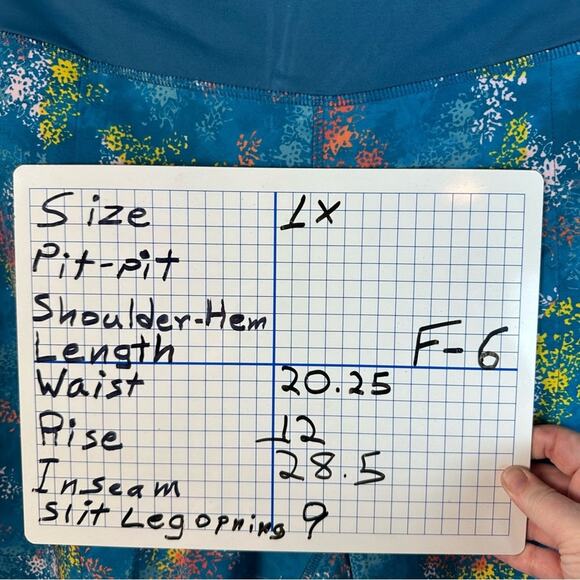 Size 1X
Pit-pit
Shoulder-Hem
Length F-6
Waist 20.25
Rise 12
Inseam 28.5
Slit Leg opning 9